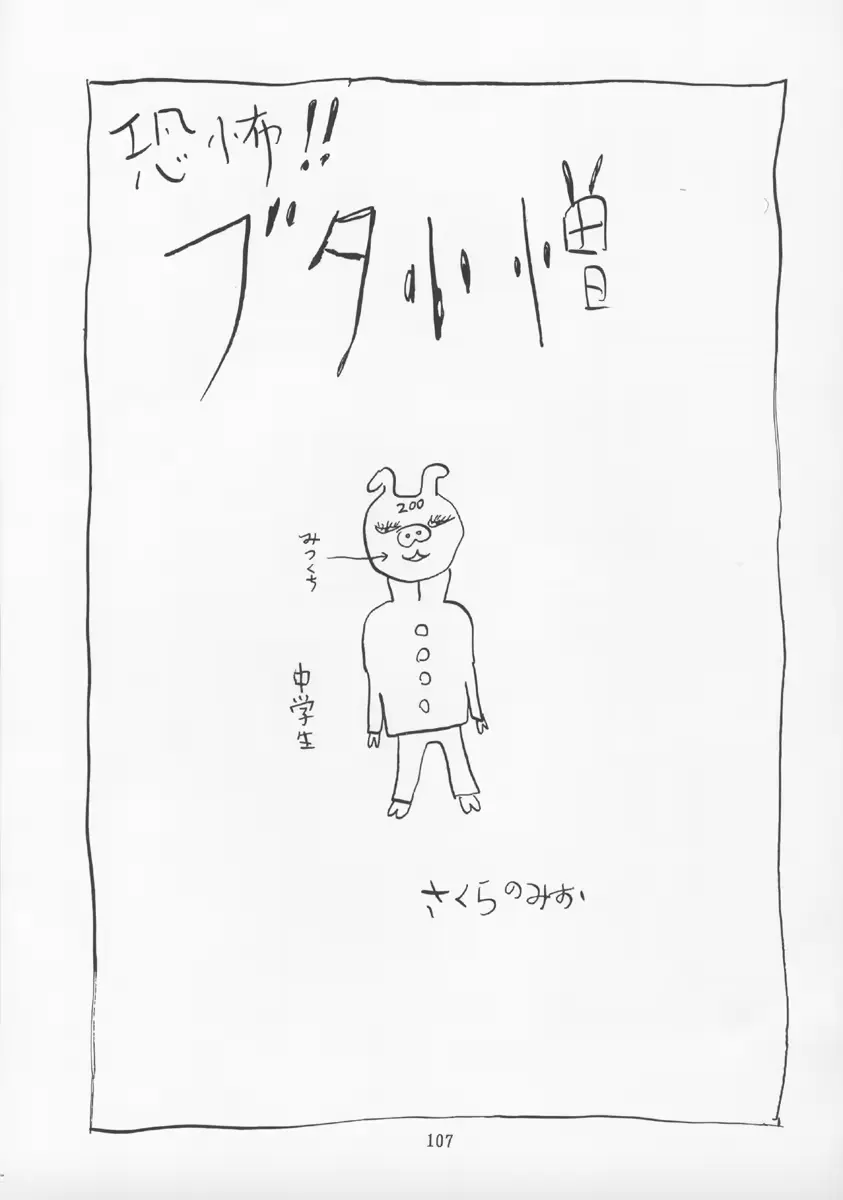 恐怖!!
ブタ小憎
200
みつくち
中学生
さくらのみお
107